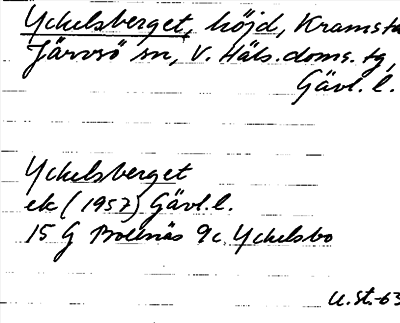 Yckelsberget, höjd, Kramsta
Järvsö sn, V. Häls. doms. tg,
Gävl. l.
Yckelsberget
ek (1957) Gävl. l.
15 G Bollnäs 9c Yckelsbo
U. St.-63